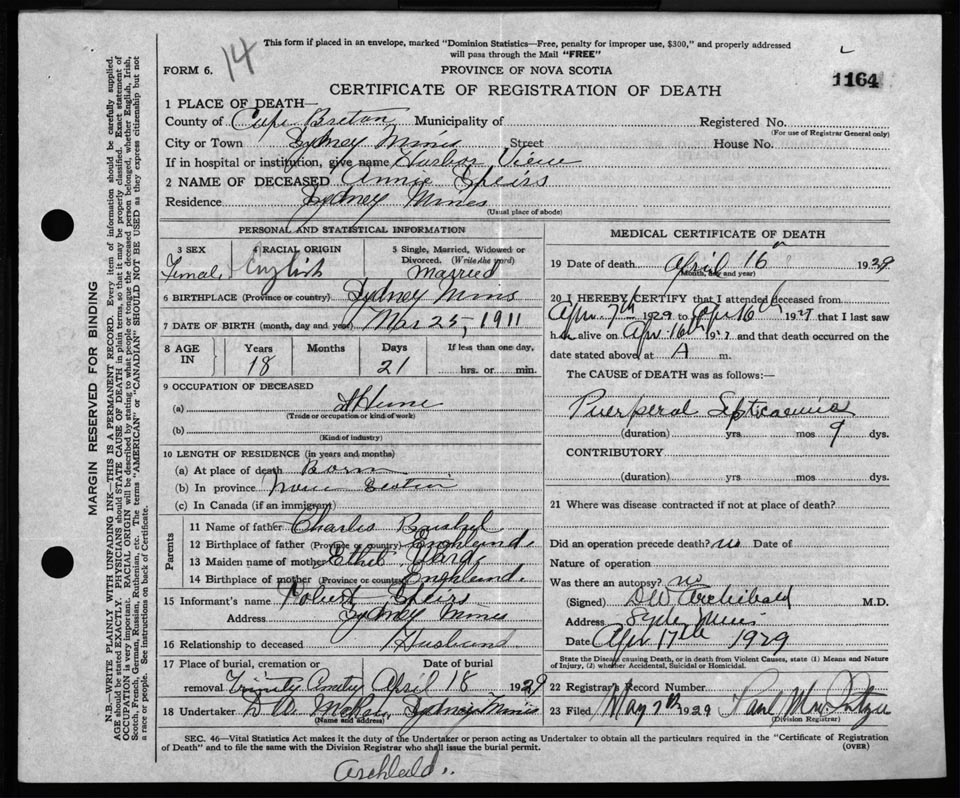 This form if placed in an envelope, marked "Dominion Statistics—Free, penalty for improper use, $300," and properly addressed
will pass through the Mail "FREE"
14
FORM 6.
PROVINCE OF NOVA SCOTIA
1164
CERTIFICATE OF REGISTRATION OF DEATH
1 PLACE OF DEATH—
County of Cape Breton Municipality of Registered No.
(For use of Registrar General only)
City or Town Sydney Mines Street House No.
If in hospital or institution, give name Harbor View
2 NAME OF DECEASED Annie Speirs
Residence Sydney Mines
(Usual place of abode)
PERSONAL AND STATISTICAL INFORMATION
3 SEX 4 RACIAL ORIGIN 5 Single, Married, Widowed or
Divorced. (Write the word)
Female English Married
6 BIRTHPLACE (Province or country) Sydney Mines
7 DATE OF BIRTH (month, day and year) Mar 25, 1911
8 AGE IN Years Months Days If less than one day,
18 21 hrs. or min.
9 OCCUPATION OF DECEASED
(a) At Home
(Trade or occupation or kind of work)
(b)
(Kind of industry)
10 LENGTH OF RESIDENCE (in years and months)
(a) At place of death Born
(b) In province Nova Scotia
(c) In Canada (if an immigrant)
Parents
11 Name of father Charles
12 Birthplace of father (Province or country) England.
13 Maiden name of mother Ethel Ward
14 Birthplace of mother (Province or country) England.
15 Informant's name Robert Speirs
Address Sydney Mines
16 Relationship to deceased Husband
17 Place of burial, cremation or Date of burial
removal Trinity Cemetry April 18 1929
18 Undertaker D W Sydney Mines
(Name and address)
MEDICAL CERTIFICATE OF DEATH
19 Date of death April 16 1929
(Month, day and year)
20 I HEREBY CERTIFY that I attended deceased from
Apr. 7th 1929 to Apr 16th 1929 that I last saw
h alive on Apr. 16th 1929 and that death occurred on the
date stated above at A m.
The CAUSE of DEATH was as follows:—
Puerperal Septicaemia
(duration) yrs mos 9 dys.
CONTRIBUTORY
(duration) yrs. mos. dys.
21 Where was disease contracted if not at place of death?
Did an operation precede death? no Date of
Nature of operation
Was there an autopsy? no
(Signed) DW Archibald M.D.
Address Sydney Mines
Date Apr 17th 1929
State the Disease causing Death, or in death from Violent Causes, state (1) Means and Nature
of Injury, (2) whether Accidental, Suicidal or Homicidal.
22 Registrar's Record Number
23 Filed May 7th 1929 Paul
(Division Registrar)
SEC. 46—Vital Statistics Act makes it the duty of the Undertaker or person acting as Undertaker to obtain all the particulars required in the "Certificate of Registration
of Death" and to file the same with the Division Registrar who shall issue the burial permit.
(OVER)
Archibald.
MARGIN RESERVED FOR BINDING
N.B.—WRITE PLAINLY WITH UNFADING INK—THIS IS A PERMANENT RECORD. Every item of information should be carefully supplied.
AGE should be stated EXACTLY. PHYSICIANS should STATE CAUSE OF DEATH in plain terms, so that it may be properly classified. Exact statement of
OCCUPATION is very important. RACIAL ORIGIN will be described by stating to what people or tongue the deceased person belonged, whether English, Irish,
Scotch, French, German, Russian, Ruthenian, etc. The terms "AMERICAN" or "CANADIAN" SHOULD NOT BE USED as they express citizenship but not
a race or people. See instructions on back of Certificate.